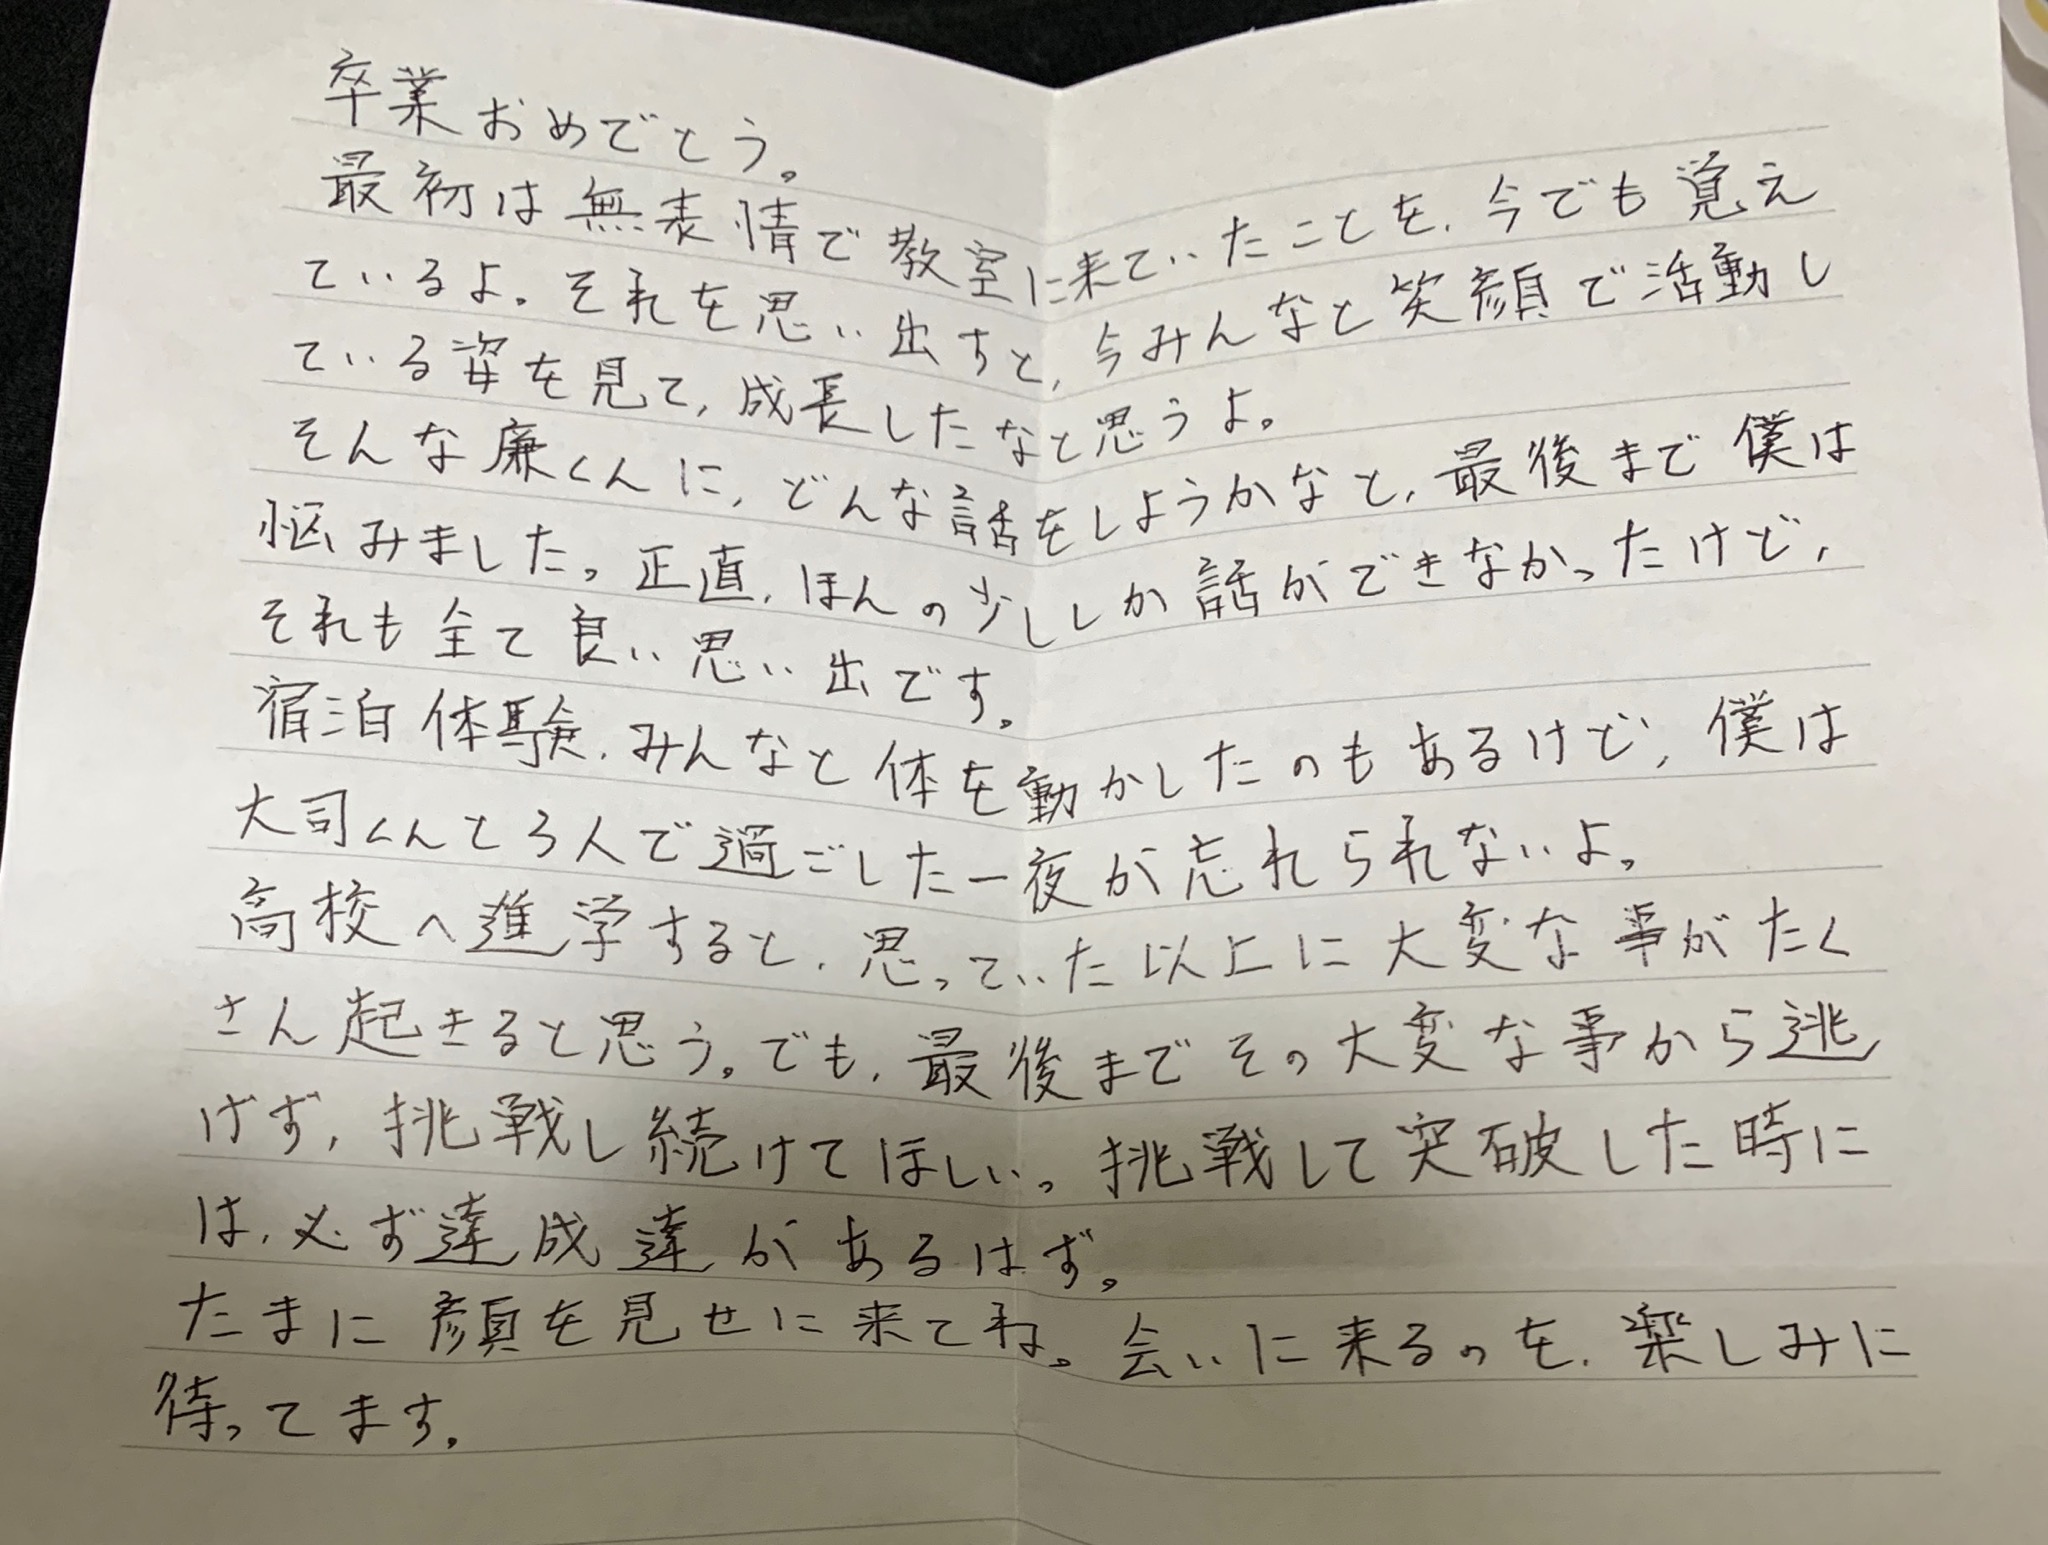 卒業おめでとう。
最初は無表情で教室に来ていたことを、今でも覚え
ているよ。それを思い出すと、今みんなと笑顔で活動し
ている姿を見て、成長したなと思うよ。
そんな廉くんに、どんな話をしようかなと、最後まで僕は
悩みました。正直、ほんの少ししか話ができなかったけど、
それも全て良い思い出です。
宿泊体験、みんなと体を動かしたのもあるけど、僕は
大司くんと3人で過ごした一夜が忘れられないよ。
高校へ進学すると、思っていた以上に大変な事がたく
さん起きると思う。でも、最後までその大変な事から逃
げず、挑戦し続けてほしい。挑戦して突破した時に
は、必ず達成達があるはず。
たまに顔を見せに来てね。会いに来るのを、楽しみに
待ってます。